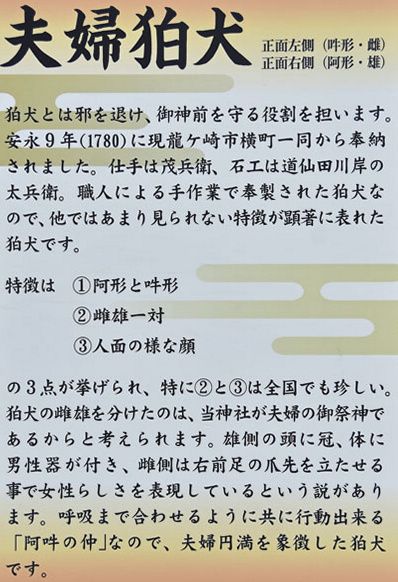 夫婦狛犬
正面左側（吽形・雌）
正面右側（阿形・雄）
狛犬とは邪を退け、御神前を守る役割を担います。
安永９年(1780)に現龍ケ崎市横町一同から奉納
されました。仕手は茂兵衛、石工は道仙田川岸の
太兵衛。職人による手作業で奉製された狛犬な
ので、他ではあまり見られない特徴が顕著に表れた
狛犬です。
特徴は　①阿形と吽形
②雌雄一対
③人面の様な顔
の３点が挙げられ、特に②と③は全国でも珍しい。
狛犬の雌雄を分けたのは、当神社が夫婦の御祭神で
あるからと考えられます。雄側の頭に冠、体に
男性器が付き、雌側は右前足の爪先を立たせる
事で女性らしさを表現しているという説があり
ます。呼吸まで合わせるように共に行動出来る
「阿吽の仲」なので、夫婦円満を象徴した狛犬
です。